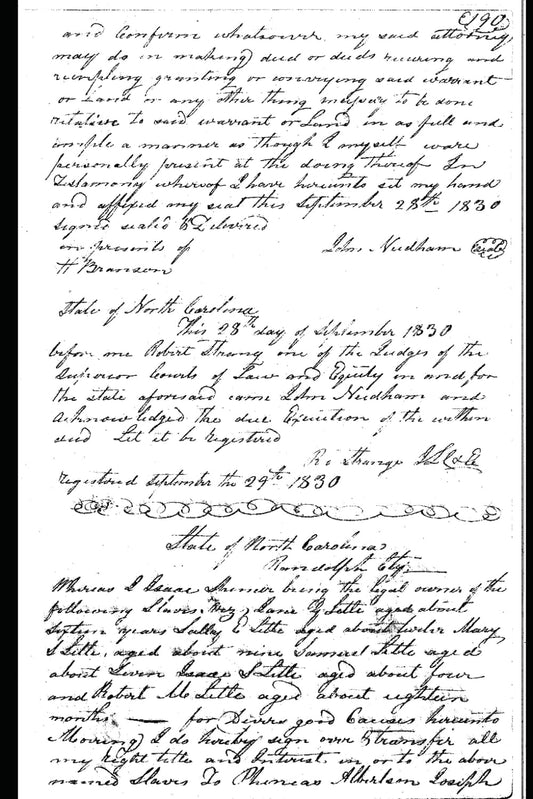 (190)
and Confirm whatsoever my said attorney
may do in making deed or deeds receiving and
receipting granting or conveying said warrant
or Land or any other thing necessary to be done
relative to said warrant or Land in as full and
ample a manner as though I myself ware
personally present at the doing thereof In
Testamony whereof I have hereunto set my hand
and affixed my seal this September 28th 1830
signed sealed & Delivered
in presents of John Needham (Seal)
H Branson
State of North Carolina
This 28th day of September 1830
before me Robert Strang one of the Judges of the
Superior Courts of Law and Equity in and for
the state aforesaid came John Needham and
Acknowledged the due Execution of the within
deed Let it be registered
Ro Strange
registered September the 29th 1830
State of North Carolina
Randolph Cty
Whereas I Isaac being the legal owner of the
following Slaves Viz Jane Y Litle aged about
Sixteen years Sally E Litle aged about twelve Mary
S Litle, aged about nine Samuel Litle aged
about Seven Isaac S Litle aged about four
and Robert M Litle aged about eighteen
months — for Divers good Causes hereunto
Moveing I do hereby sign over & transfer all
my right title and Interest in or to the above
named Slaves To Phineas Albertson Joseph